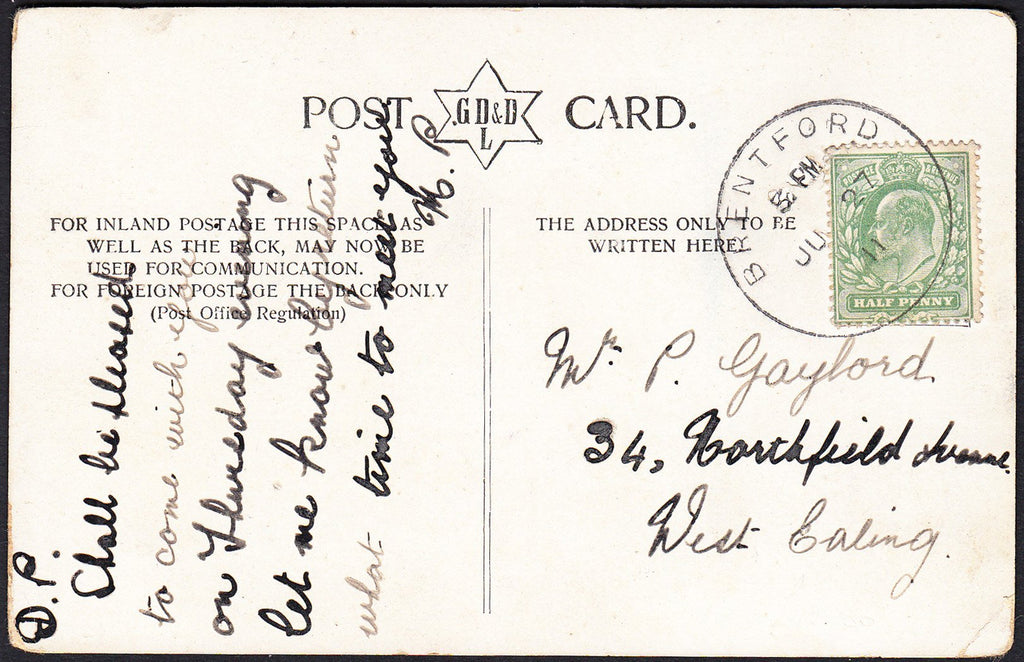 POST CARD.
G D & D
L
FOR INLAND POSTAGE THIS SPACE, AS
WELL AS THE BACK, MAY NOW BE
USED FOR COMMUNICATION.
FOR FOREIGN POSTAGE THE BACK ONLY
(Post Office Regulation)
THE ADDRESS ONLY TO BE
WRITTEN HERE.
BRENTFORD
PM
JU 21
11
HALF PENNY
D. P.
Shall be pleased
to come with you
on Thursday evening
let me know by return
what time to meet you
M. P
Mr. P. Gaylord
34, Northfield Avenue.
West Ealing.